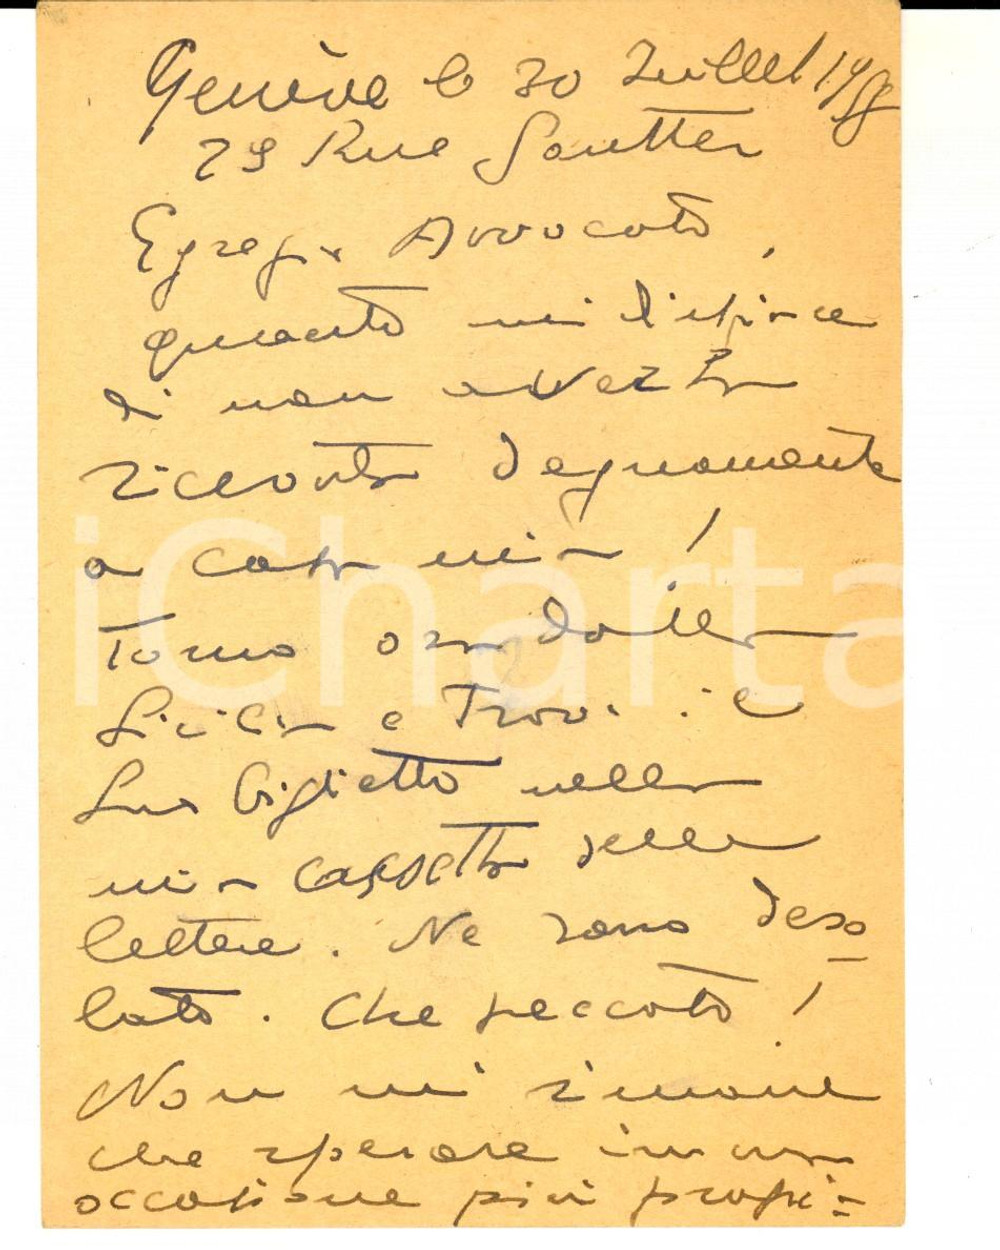 Genève le 30 Juillet 19
29 Rue Sautter
Egregio Avvocato,
quanto mi dispiace
di non averLa
ricevuta degnamente
a casa mia!
Torno ora dalla
Sicilia e trovo il
Suo biglietto nella
mia cassetta delle
lettere. Ne sono deso
lato. Che peccato!
Non mi rimane
che sperare in una
occasione più propi=
iCharta